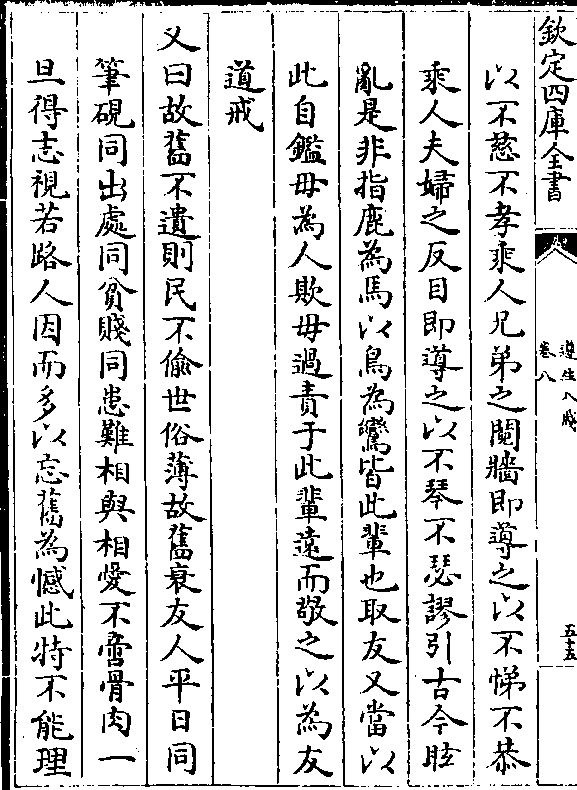 欽定四庫全書
遵生八牋
卷八
五十五
以不慈不孝乘人兄弟之䦧牆即導之以不悌不恭
乘人夫婦之反目即導之以不琴不瑟謬引古今眩
亂是非指鹿為馬以鳥為鸞皆此輩也取友又當以
此自鑑毋為人欺毋過責于此輩遠而敬之以為友
道戒
又曰故舊不遺則民不偷世俗薄故舊衰友人平日同
筆硯同出處同貧賤同患難相與相愛不啻骨肉一
旦得志視若路人因而多以忘舊為憾此特不能理